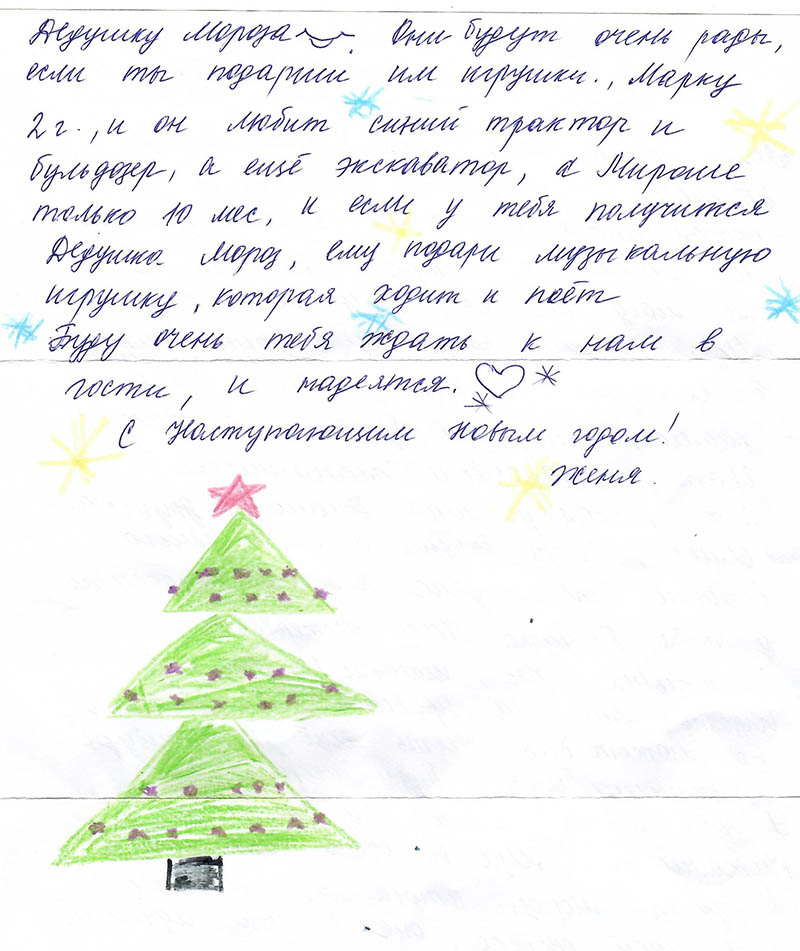 Дедушку Мороза. Они будут очень рады,
если ты подариш им игрушки., Марку
2 г., и он любит синий трактор и
бульдозер, а ещё экскаватор, а Мироше
только 10 мес, и если у тебя получится
Дедушка Мороз, ему подари музыкальную
игрушку, которая ходит и поёт
Буду очень тебя ждать к нам в
гости, и надеятся.
С Наступающим Новым годом!
Женя.